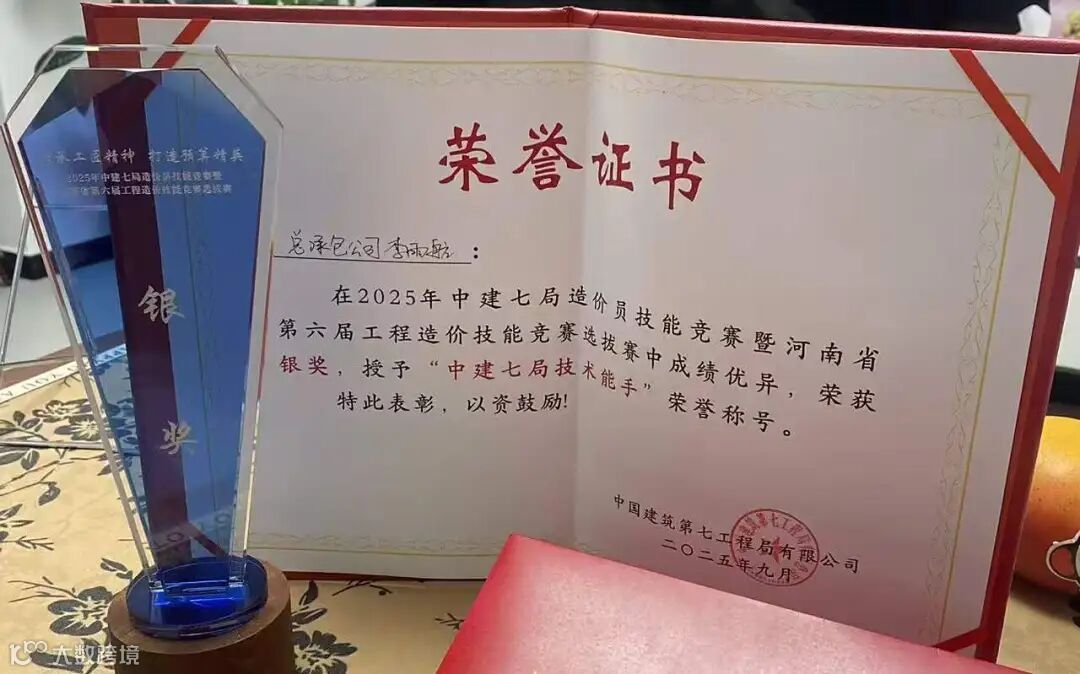 承工匠精神 打造预算精英
2025年中建七局造价员技能竞赛暨
省第六届工程造价技能竞赛选拔赛
银
奖
荣誉证书
总承包公司李雨航：
在2025年中建七局造价员技能竞赛暨河南省
第六届工程造价技能竞赛选拔赛中成绩优异，荣获
银奖，授予“中建七局技术能手”荣誉称号。
特此表彰，以资鼓励！
中国建筑第七工程局有限公司
二〇二五年九月
大数跨境